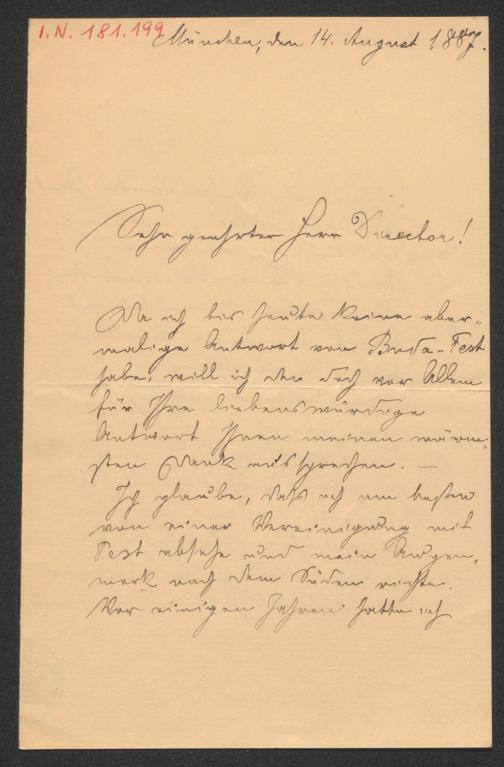 I.N. 181.199
München, den 14. August 1887.
Sehr geehrter Herr Director!
Da ich bis heute keine aber-
malige Antwort von Buda-Pest
habe, will ich denn doch vor Allem
für Ihre liebenswürdige
Antwort Ihnen meinen wärm-
sten Dank aussprechen. —
Ich glaube, daß ich am besten
von einer Vereinigung mit
Pest absehe und mein Augen-
merk nach dem Süden richte.
Vor einigen Jahren hatte ich